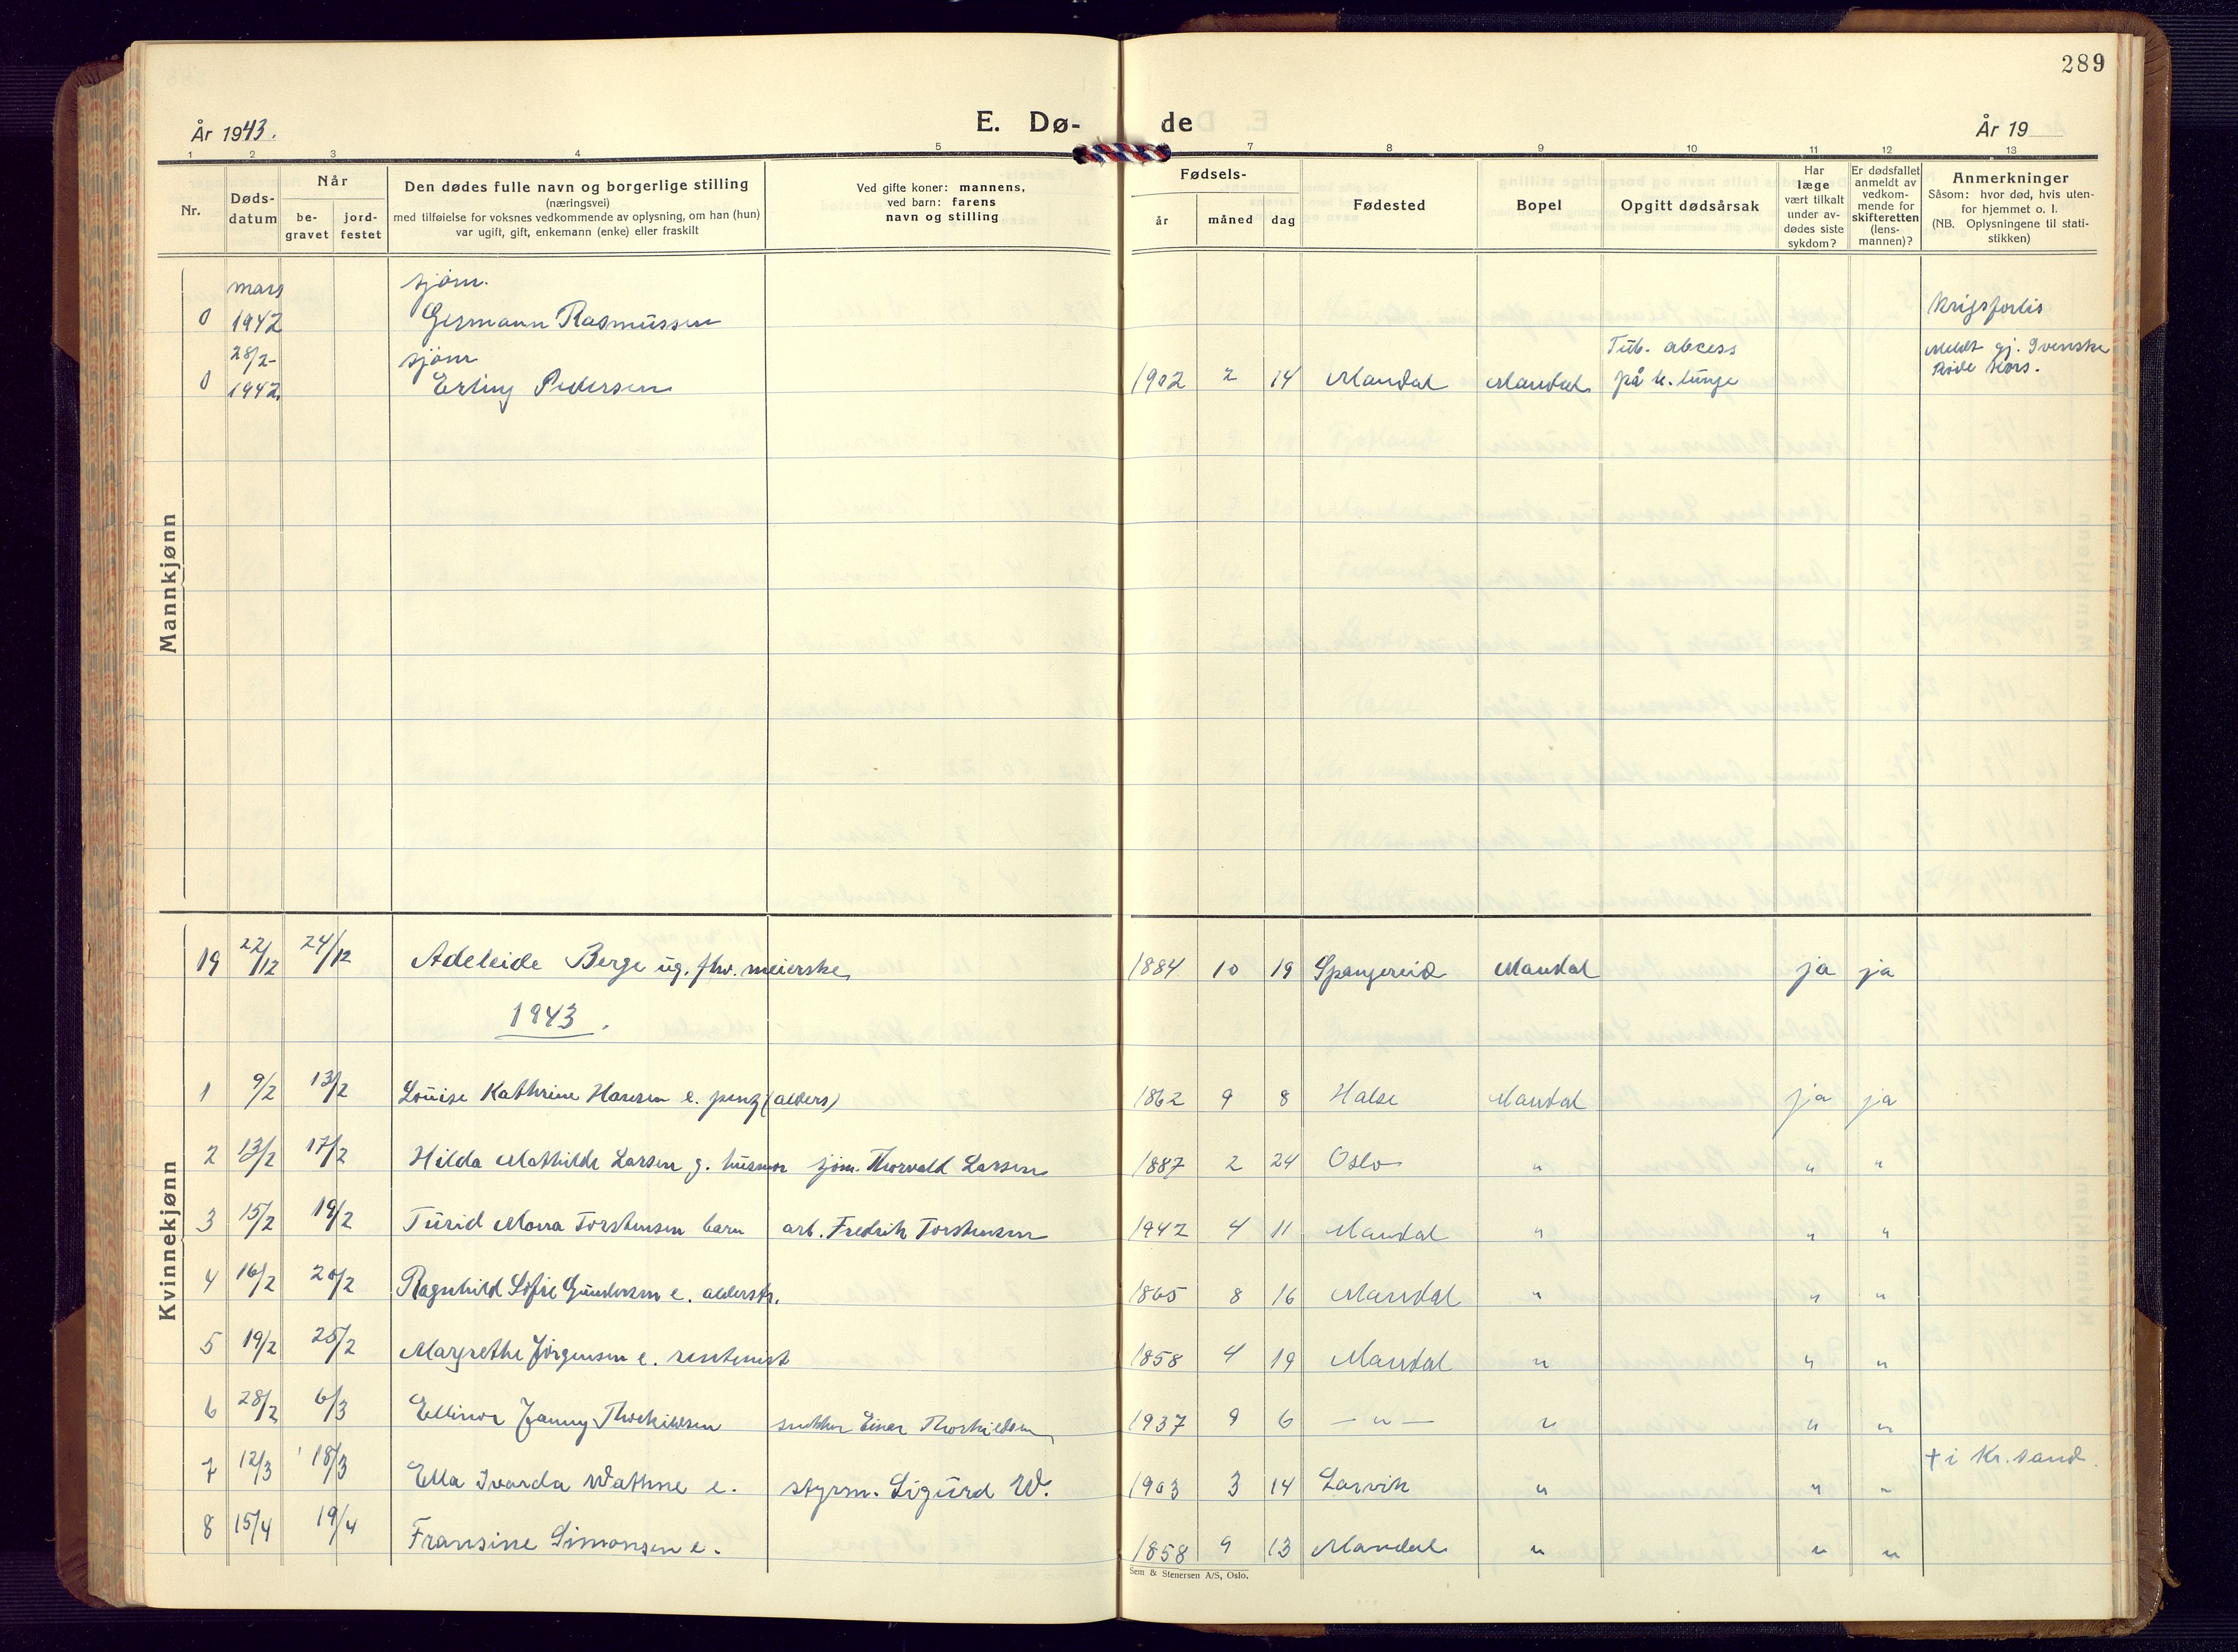 289
År 1943.
E. Dø- de
År 19
1 2 3 4 5 7 8 9 10 11 12 13
Nr.
Døds-
datum
Når
be-
gravet
jord-
festet
Den dødes fulle navn og borgerlige stilling
(næringsvei)
med tilføielse for voksnes vedkommende av oplysning, om han (hun)
var ugift, gift, enkemann (enke) eller fraskilt
Ved gifte koner: mannens,
ved barn: farens
navn og stilling
Fødsels-
år måned dag
Fødested
Bopel
Opgitt dødsårsak
Har
læge
vært tilkalt
under av-
dødes siste
sykdom?
Er dødsfallet
anmeldt av
vedkom-
mende for
skifteretten
(lens-
mannen)?
Anmerkninger
Såsom: hvor død, hvis uten-
for hjemmet o. l.
(NB. Oplysningene til stati-
stikken)
Mannkjønn
mars sjøm.
0 1942 Germann Rasmussen Krigsforlis
28/2- sjøm Tub. abcess Meldt gj. Svenske
0 1942. Erling Pedersen 1902 2 14 Mandal Mandal på h. lunge Røde Kors.
Kvinnekjønn
19 22/12 24/12 Adeleide Berge ug. fhv. meierske 1884 10 19 Spangereid Mandal ja ja
1943.
1 9/2 13/2 Louise Kathrine Hansen e. (alders) 1862 9 8 Halse Mandal ja ja
2 13/2 17/2 Hilda Mathilde Larsen g. husmor sjøm. Thorvald Larsen 1887 2 24 Oslo " " "
3 15/2 19/2 Turid Mona Torstensen barn arb. Fredrik Torstensen 1942 4 11 Mandal " " "
4 16/2 20/2 Ragnhild Sofie Gundersen e. alderstr. 1865 8 16 Mandal " " "
5 19/2 25/2 Margrethe Jørgensen e. rentenist 1858 4 19 Mandal " " "
6 28/2 6/3 Ellinor Jenny Thorkildsen snekker Einar Thorkildsen 1937 9 6 — " — " " "
7 12/3 18/3 Ella Ivarda Wathne e. styrm. Sigurd W. 1903 3 14 Larvik " " " † i Kr.sand.
8 15/4 19/4 Fransine Simonsen e. 1858 9 13 Mandal " " "
Sem & Stenersen A/S, Oslo.